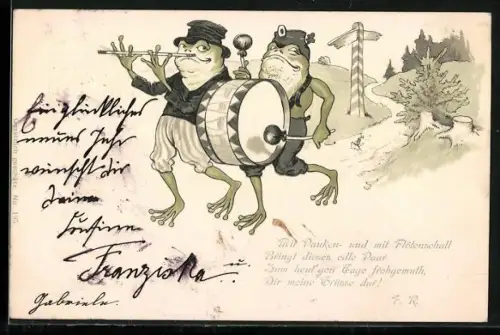 Ein glückliches
neues Jahr
wünscht dir
deine
Cousine
Franziska u.
Gabriele.
Mit Pauken- und mit Flötenschall
Bringt dieses edle Paar
Zum heut'gen Tage frohgemuth,
Dir meine Grüsse dar!